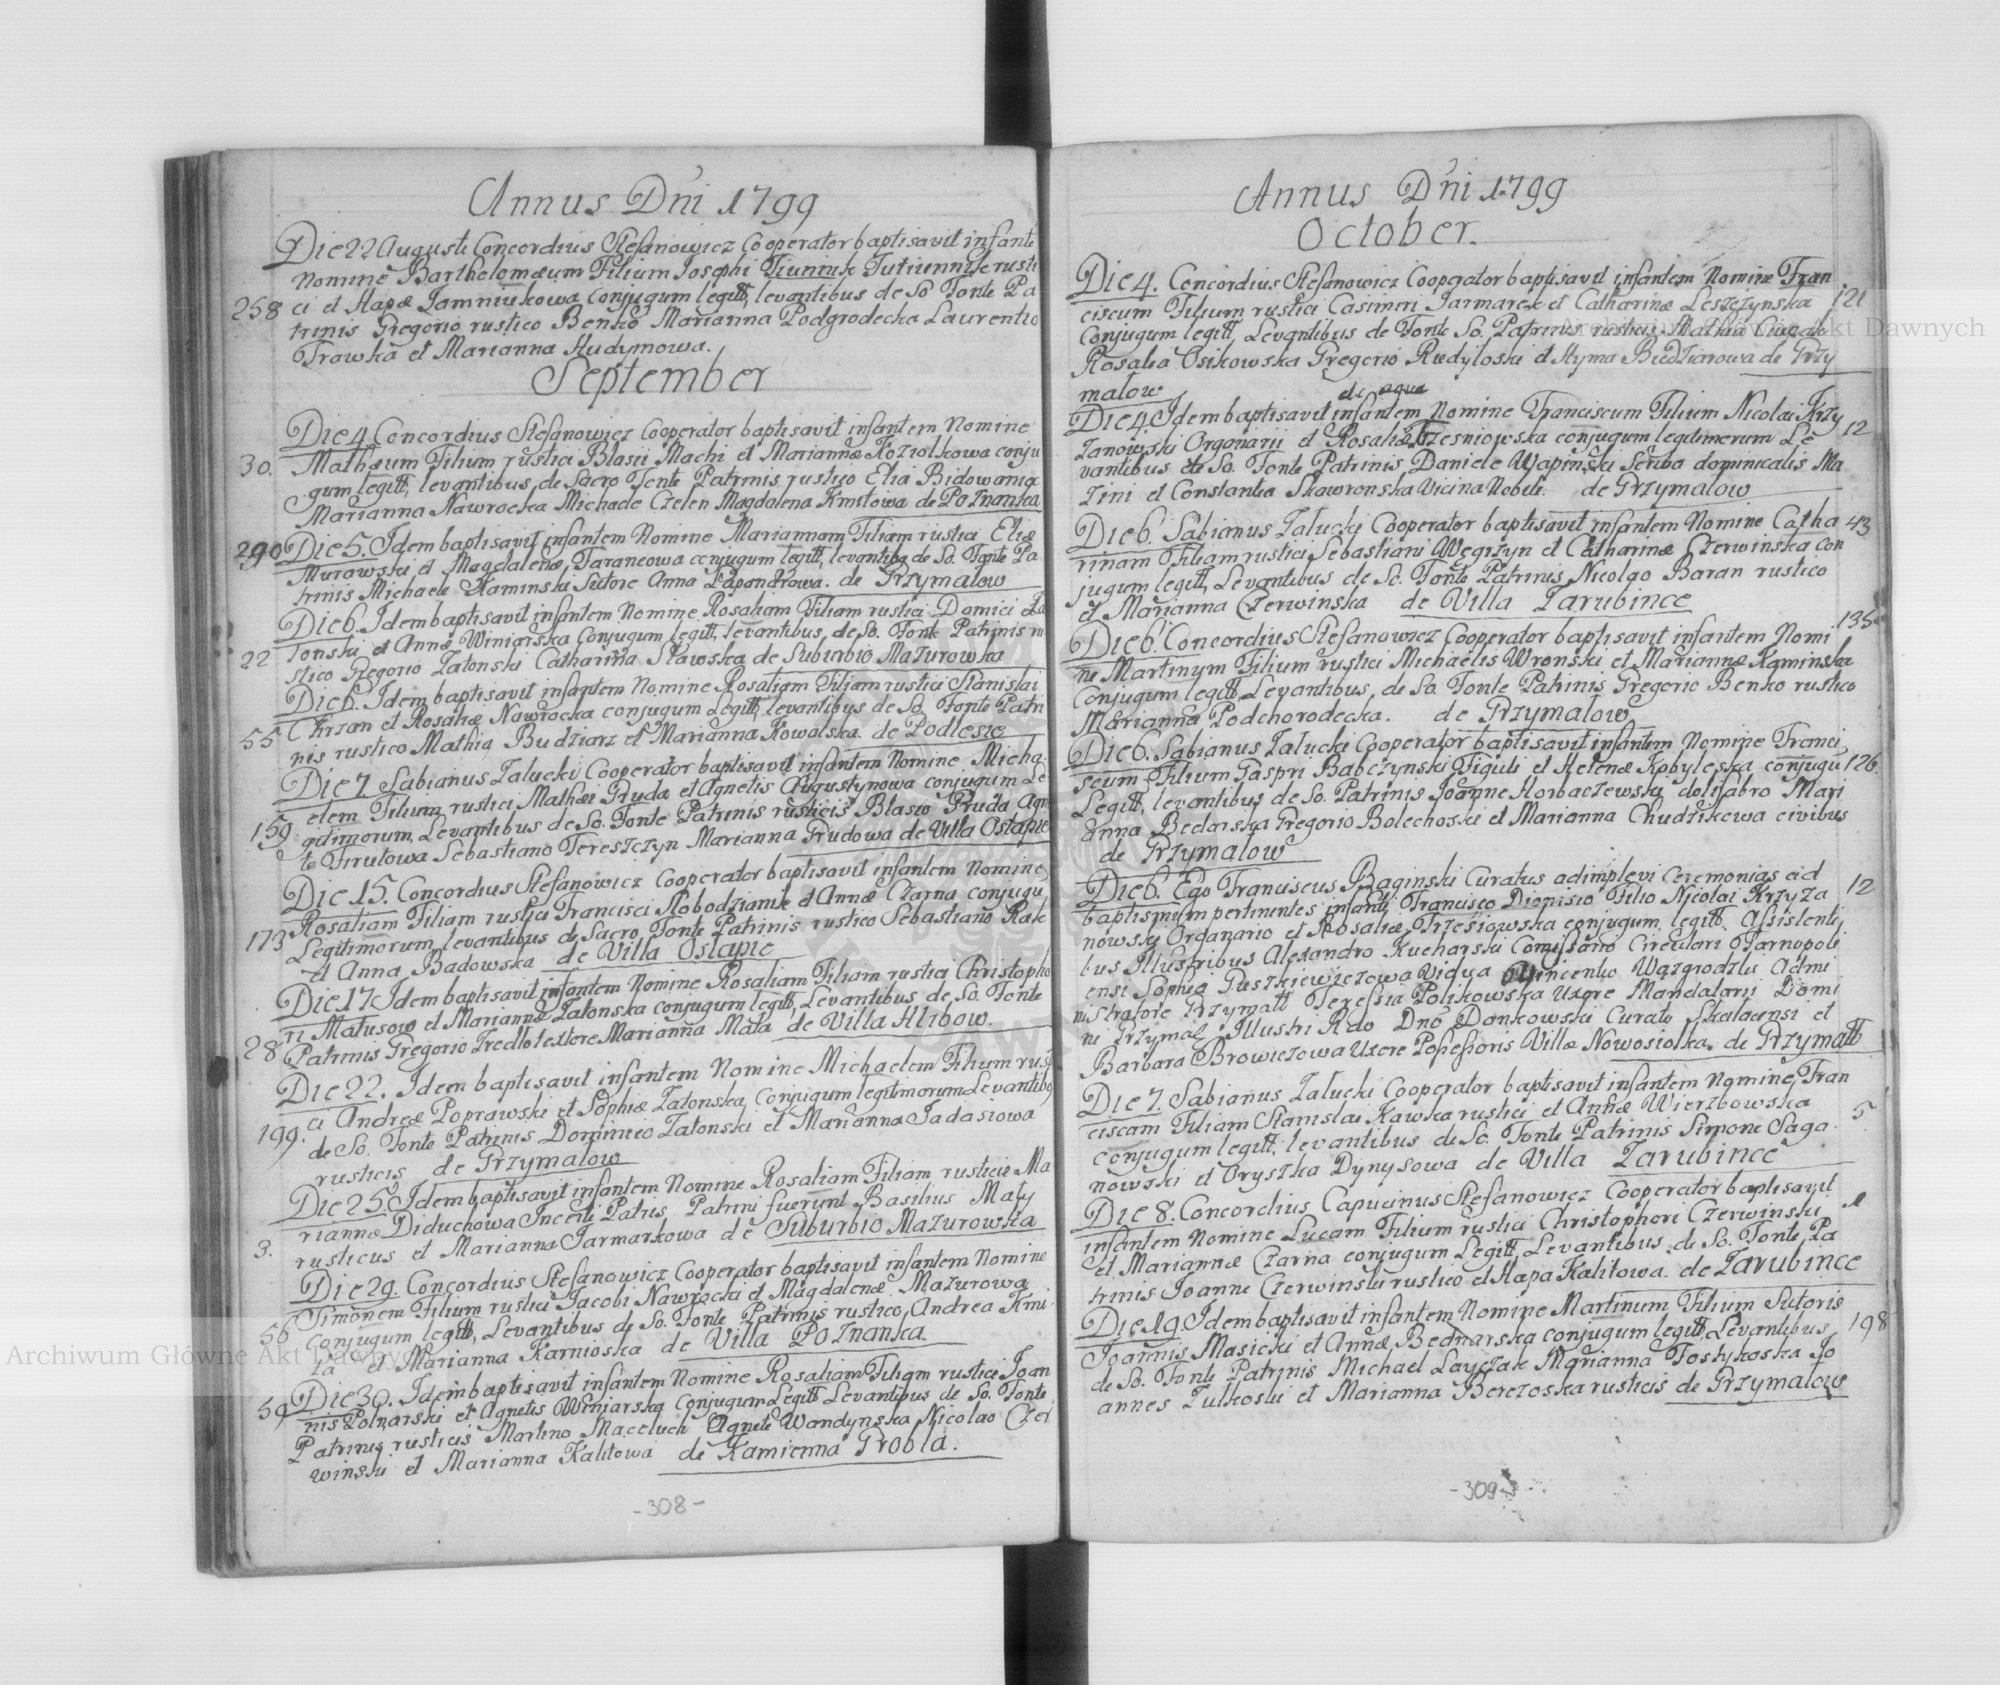 Annus Dńi 1799
Die 22 Augusti Concordius Stefanowicz Cooperator baptisavit infante
Nomine Bartholomæum Filium Josephi Tiunnik Tutiunnik rusti
258 ci et Hapæ Jamniukowa conjugum legitt, levantibus de So Fonte Pa
trinis Gregorio rustico Benko Marianna Podgrodecka Laurentio
Trawka et Marianna Hudymowa.
September
Die 4 Concordius Stefanowicz Cooperator baptisavit infantem Nomine
30. Mathæum Filium rustici Blasii Machi et Mariannæ Koziolkowa conju
gum legitt, levantibus de Sacro Fonte Patrinis rustico Elia Bidowaniec
Marianna Nawrocka Michaele Czelen Magdalena Kmitowa de Poznanka
290 Die 5. Idem baptisavit infantem Nomine Mariannam Filiam rustici Eliæ
Murawski et Magdalenæ Tarancowa conjugum legitt, levantibq de So. Fonte Pa
trinis Michaele Kaminski Sutore Anna Laponorowa. de Grzymalow
Die 6. Idem baptisavit infantem Nomine Rosaliam Filiam rustici Domici Za
22 Tonski et Annæ Winiarska Conjugum legitt, levantibus de So. Fonte Patrinis ru
stico Gregorio Zatonski Catharina Stawska de Suburbio Mazurowka
Die 6. Idem baptisavit infantem Nomine Rosaliam Filiam rustici Stanislai
55 Chrzan et Rosaliæ Nawrocka conjugum Legitt, levantibus de So. Fonte Patri
nis rustico Mathia Budziarz et Marianna Kowalska. de Podlesie
Die 7 Sabianus Zalucki Cooperator baptisavit infantem Nomine Micha
elem Filium rustici Mathæi Gruda et Agnetis Augustynowa conjugum Le
159. gitimorum, Levantibus de So. Fonte Patrinis rusticis Blasio Gruda Agne
te Firutowa Sebastiano Tereszczyn Marianna Grudowa de Villa Ostapie
Die 15. Concordius Stefanowicz Cooperator baptisavit infantem Nomine
Rosaliam Filiam rustici Francisci Slobodzianik et Annæ Czarna conjugu
173 Legitimorum, levantibus de Sacro Fonte Patrinis rustico Sebastiano Rak
et Anna Badowska de Villa Ostapie
Die 17 Idem baptisavit infantem Nomine Rosaliam Filiam rustici Christopho
ri Matusow et Mariannæ Zatonska conjugum legitt, Levantibus de So. Fonte
28 Patrinis Gregorio Zredlo textore Marianna Mata de Villa Hlibow.
Die 22. Idem baptisavit infantem Nomine Michaelem Filium rusti
ci Andreæ Poprawski et Sophiæ Zatonska, Conjugum legitimorum Levantibq
199. de So. Fonte Patrinis Dominico Zatonski et Marianna Sadasiowa
rusticis de Grzymalow
Die 25. Idem baptisavit infantem Nomine Rosaliam Filiam rusticæ Ma
riannæ Diduchowa Incerti Patris, Patrini fuerunt Basilius Maty
3. rusticus et Marianna Jarmarkowa de Suburbio Mazurowska
Die 29. Concordius Stefanowicz Cooperator baptisavit infantem Nomine
Simonem Filium rustici Jacobi Nawrocki et Magdalenæ Mazurowa
56 Conjugum legitt, Levantibus de So. Fonte Patrinis rustico Andrea Kmi
ta et Marianna Karnioska de Villa Poznanka.
Die 30. Idem baptisavit infantem Nomine Rosaliam Filiam rustici Joan
59 nis Polnarski et Agnetis Winiarska Conjugum Legitt Levantibus de So. Fonte
Patrinis rusticis Martino Maceluch Agnete Wandynska Nicolao Czer
winski et Marianna Kalitowa de Kamienna Grobla.
-308-
Annus Dńi 1799
October.
Die 4. Concordius Stefanowicz Cooperator baptisavit infantem Nomine Fran
ciscum Filium rustici Casimiri Jarmarek et Catharinæ Leszczynska 121
Conjugum legitt, Levantibus de Fonte So. Patrinis rusticis Mathia
Rosalia Osikowska Gregorio Rudyloski et Hyma Budziarowa de Grzy
malow
Die 4. Idem baptisavit infantem de aqua Nomine Franciscum Filium Nicolai Krzy
zanowski Organarii et Rosaliæ Trzesniowska conjugum legitimorum Le 12
vantibus de So. Fonte Patrinis Daniele Wapinski Scriba dominicalis Ma
zini et Constantia Skawronska Vicina Nobili. de Grzymalow
Die 6. Sabianus Zalucki Cooperator baptisavit infantem Nomine Catha 43
rinam Filiam rustici Sebastiani Wegrzyn et Catharinæ Czerwinska con
jugum legitt, Levantibus de So. Fonte Patrinis Nicolao Baran rustico
et Marianna Czerwinska de Villa Zarubince
Die 6. Concordius Stefanowicz Cooperator baptisavit infantem Nomi 135
ne Martinym Filium rustici Michaelis Wronski et Mariannæ Kaminska
Conjugum legitt, Levantibus de So. Fonte Patrinis Gregorio Benko rustico
Marianna Podchorodecka. de Grzymalow
Die 6. Sabianus Zalucki Cooperator baptisavit infantem Nomine Franci
scum Filium Gaspri Babczynski Figuli et Helenæ Kobyleska conjugu 126.
Legitt, levantibus de So. Patrinis Joanne Horbaczewski dolifabro Mari
anna Bednarska Gregorio Bolechoski et Marianna Chudzikewa civibus
de Grzymalow
Die 6. Ego Franciscus Baginski Curatus adimplevi Ceremonias ad 12
baptismum pertinentes infanti, Francisco Dionisio Filio Nicolai Krzyza
nowski Organario et Rosaliæ Trzesiowska conjugum legitt. Assistenti
bus Illustribus Alexandro Kucharski Comissario Circulari Tarnopoli
ensi Sophia Guszkiewiczowa Vidua Vincentio Wazgrodzki Admi
nistratore Grzymall Teresia Polikowska Uxore Mandatarii Domi
ni Grzymal, Illustri Rdo Dno Dankowski Curato Skalacensi et
Barbara Browiczowa Uxore Possessoris Villæ Nowosiolka. de Grzymall
Die 7. Sabianus Zalucki Cooperator baptisavit infantem Nomine Fran
ciscam Filiam Stanislai Kawka rustici et Annæ Wierzbowska 5
conjugum legitt, levantibus de So. Fonte Patrinis Simone Saga
nowski et Oryszka Dynysowa de Villa Zarubince
Die 8. Concordius Capucinus Stefanowicz Cooperator baptisavit
infantem Nomine Lucam Filium rustici Christophori Czerwinski 1
et Mariannæ Czarna conjugum Legitt, Levantibus de So. Fonte Pa
trinis Joanne Czerwinski rustico et Hapa Kalitowa. de Zarubince
Die 19. Idem baptisavit infantem Nomine Martinum Filium Sutoris
Joannis Masicki et Annæ Bednarska conjugum legitt, Levantibus 198
de So. Fonte Patrinis Michael Layczak Marianna Tostykoska Jo
annes Zulkoski et Marianna Berezoska rusticis de Grzymalow
-309-
Archiwum Główne Akt Dawnych
Akt Dawnych